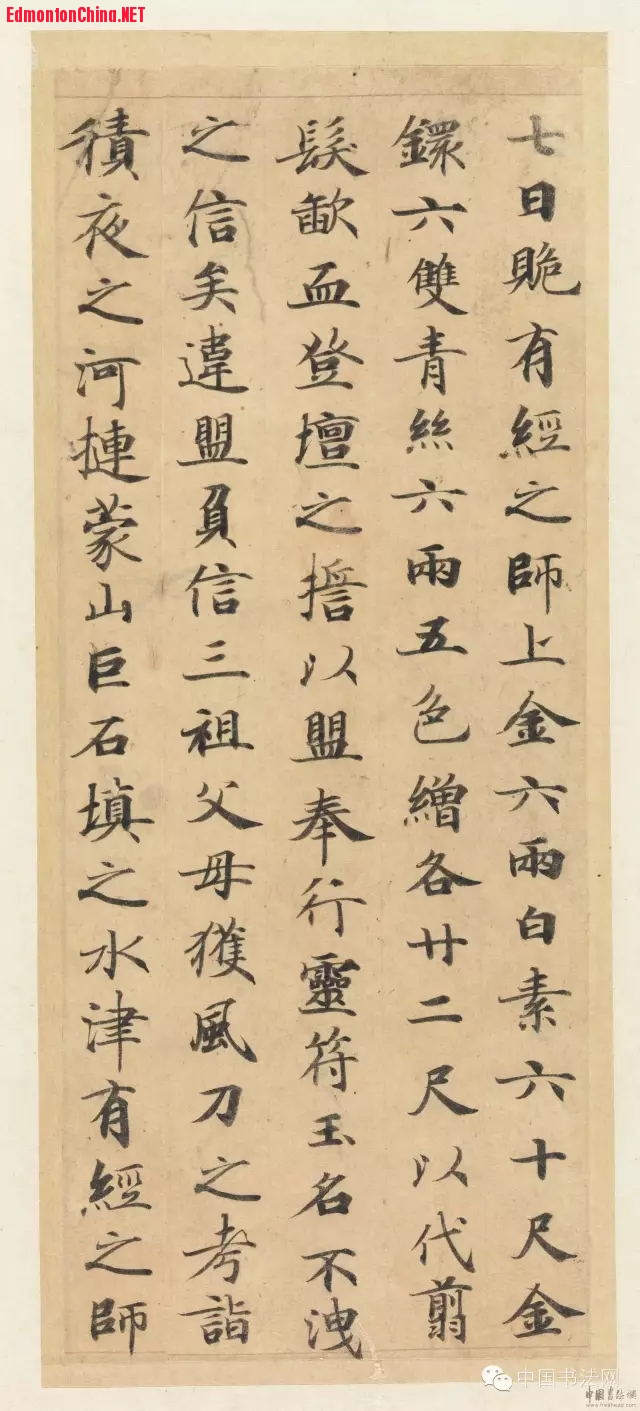 EdmontonChina.NET
七日跪有經之師上金六兩白素六十尺金
鐶六雙青絲六兩五色繒各廿二尺以代翦
髮歃血登壇之誓以盟奉行靈符玉名不洩
之信矣違盟負信三祖父母獲風刀之考詣
積夜之河摙蒙山巨石填之水津有經之師
中国书法网
中国书法网
www.freehead.com